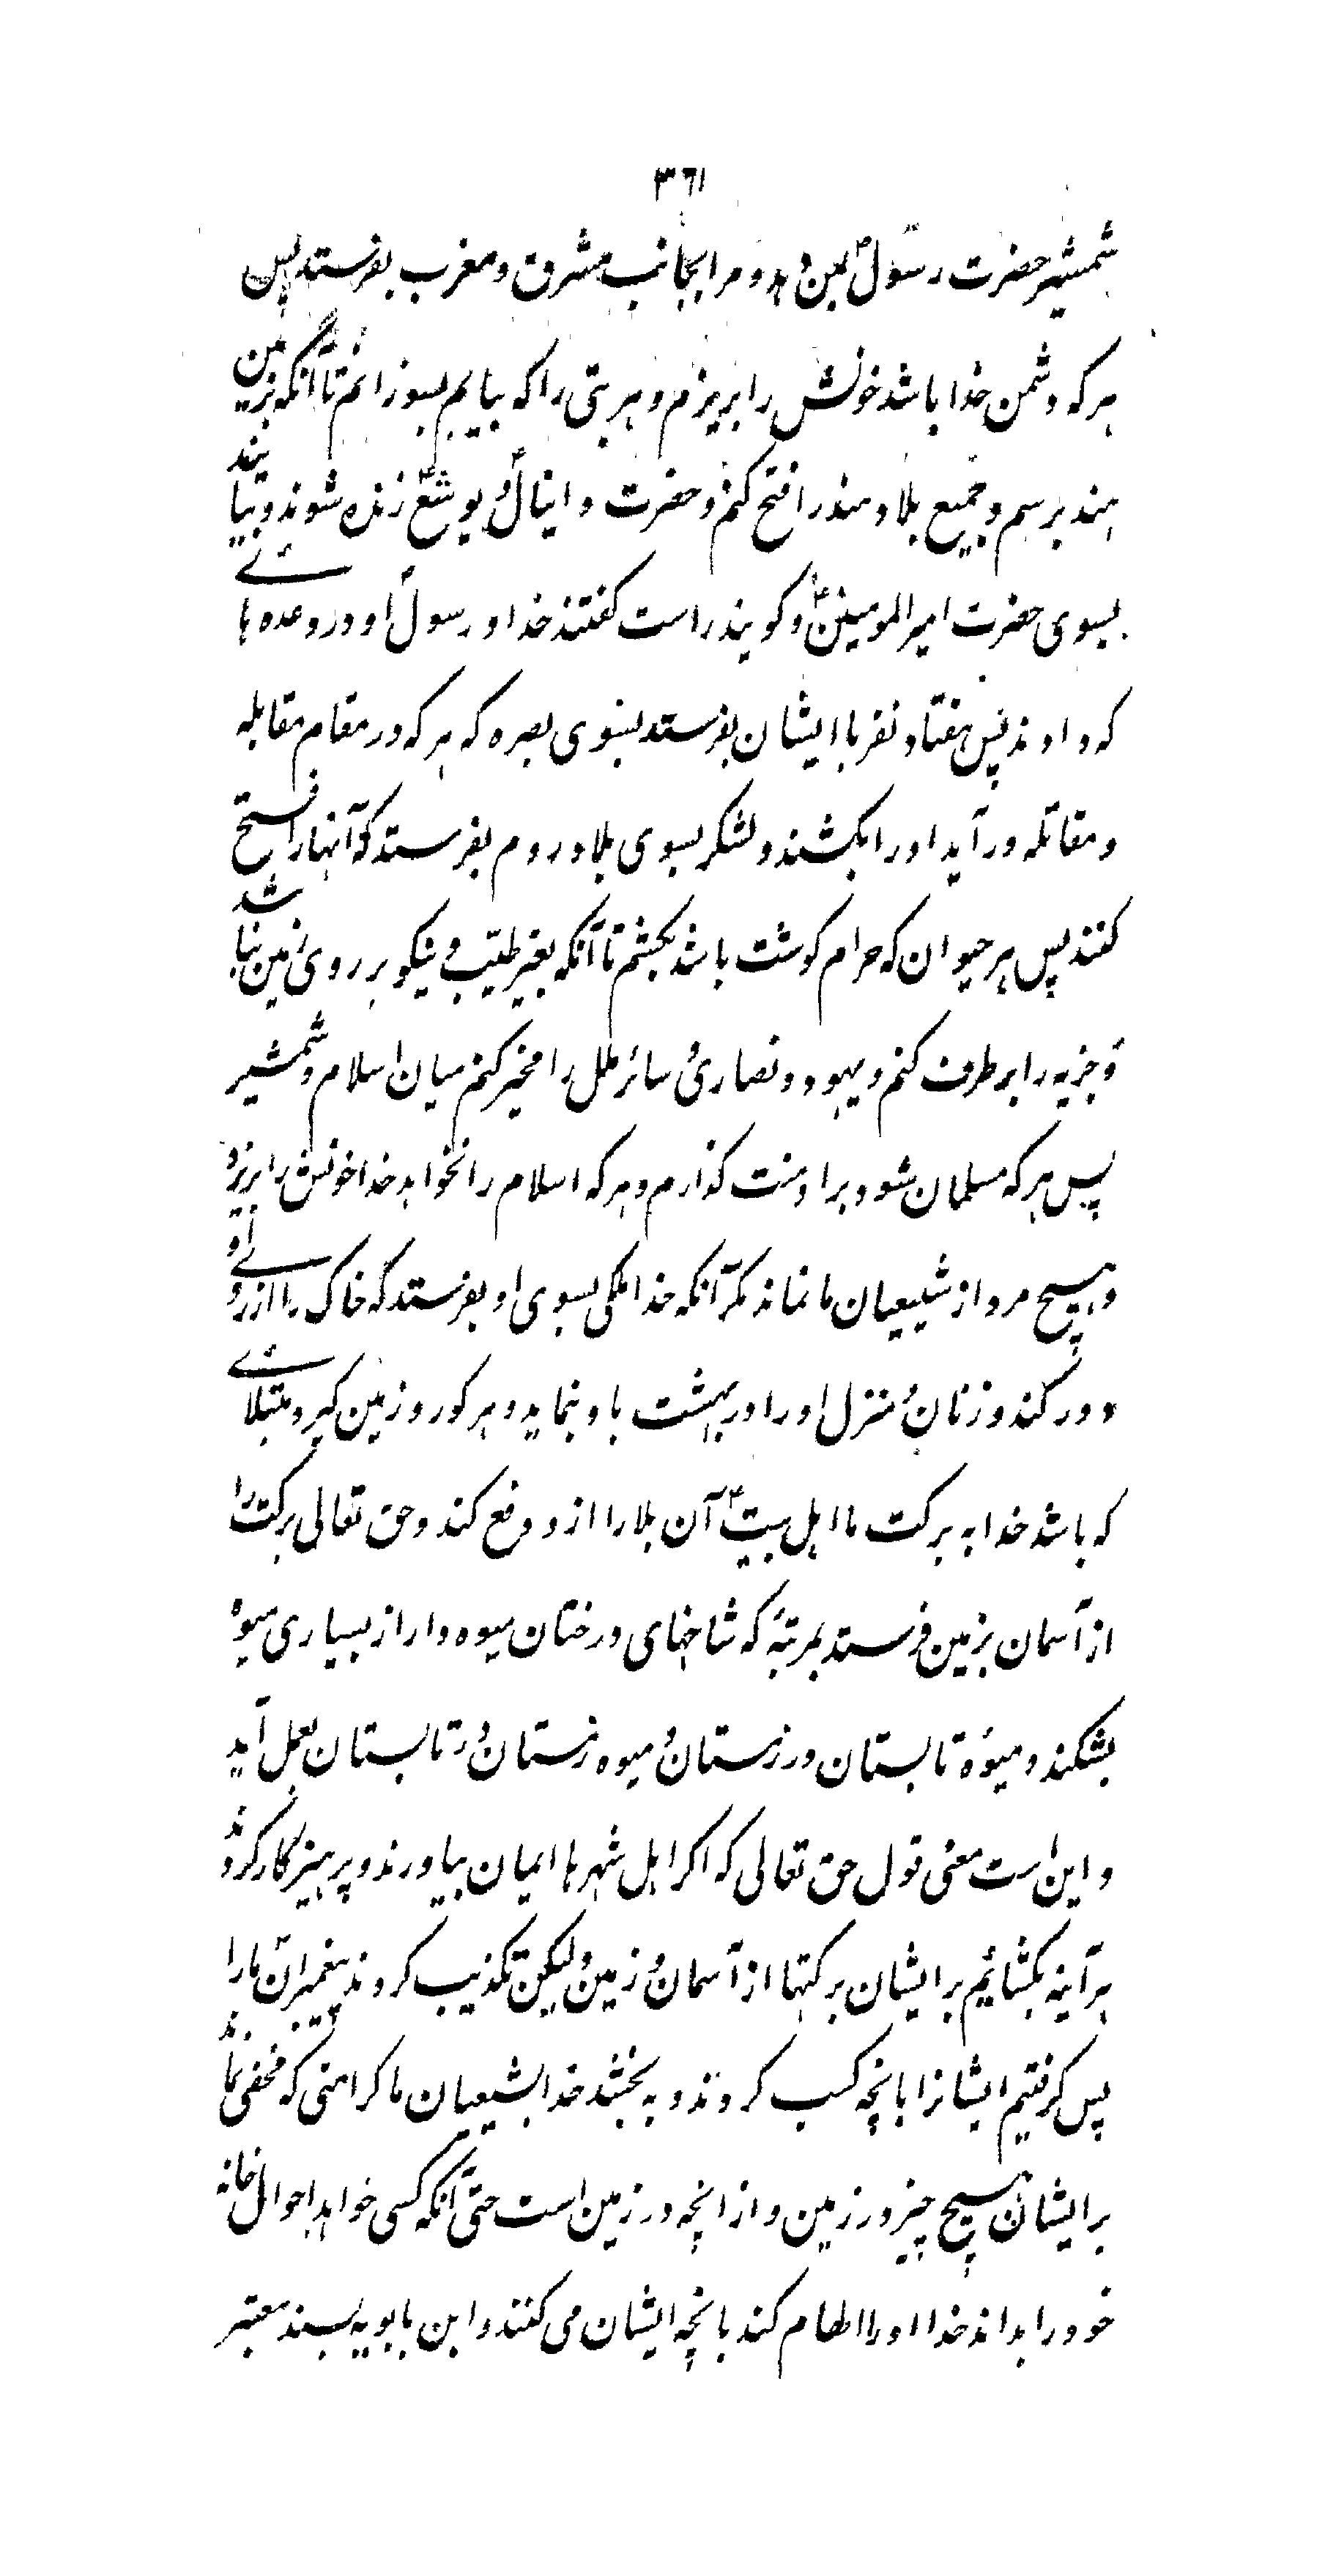 ۳٦۱
شمشیر حضرت رسولؐ بمن دهد و مرا بجانب مشرق و مغرب بفرستد پس
هر که دشمن خدا باشد خونش را بریزم و هر بتی را که بیابم بسوزانم تا آنکه بزمین
هند برسم و جمیع بلاد هند را فتح کنم و حضرت دانیالؑ و یوشعؑ زنده شوند و بیایند
بسوی حضرت امیرالمومنینؑ و کویند راست کفتند خدا و رسول او در وعده هائے
که دادند پس هفتاد نفر با ایشان بفرستد بسوی بصره که هر که در مقام مقابله
و مقاتله در آید او را بکشند و لشکر بسوی بلاد روم بفرستد که آنها را فتح
کنند پس هر حیوان که حرام کوشت باشد بکشم تا آنکه بغیر طیب و نیکو بر روی زمین نباشد
و جزیه را برطرف کنم و یهود و نصاری و سائر ملل را مخیر کنم میان اسلام و شمشیر
پس هر که مسلمان شود بر او منت کذارم و هر که اسلام را نخواهد خدا خونش را بریزد
و هیچ مرد از شیعیان ما نماند مکر آنکه خدا ملکی بسوی او بفرستد که خاک را از روئے او
دور کند و زنان و منزل او را در بهشت باو بنماید و هر کور و زمین کیر و مبتلائے
که باشد خدا به برکت ما اهل بیتؑ آن بلا را از و دفع کند و حق تعالی برکت را
از آسمان بزمین فرستد بمرتبهٔ که شاخهای درختان میوه دار از بسیاری میوه
بشکند و میوهٔ تابستان در زمستان و میوه زمستان در تابستان بعمل آید
و این است معنی قول حق تعالی که اکر اهل شهرها ایمان بیاورند و پرهیز کار کردند
هر آینه بکشائیم بر ایشان برکتها از آسمان و زمین و لیکن تکذیب کردند پیغمبران ما را
پس کرفتیم ایشانرا بانچه کسب کردند و به بخشد خدا بشیعیان ما کرامتی که مخفی نماند
بر ایشان هیچ چیز در زمین و از انچه در زمین است حتی آنکه کسی خواهد احوال خانه
خود را بداند خدا او را الهام کند بانچه ایشان می کنند و ابن بابویه بسند معتبر